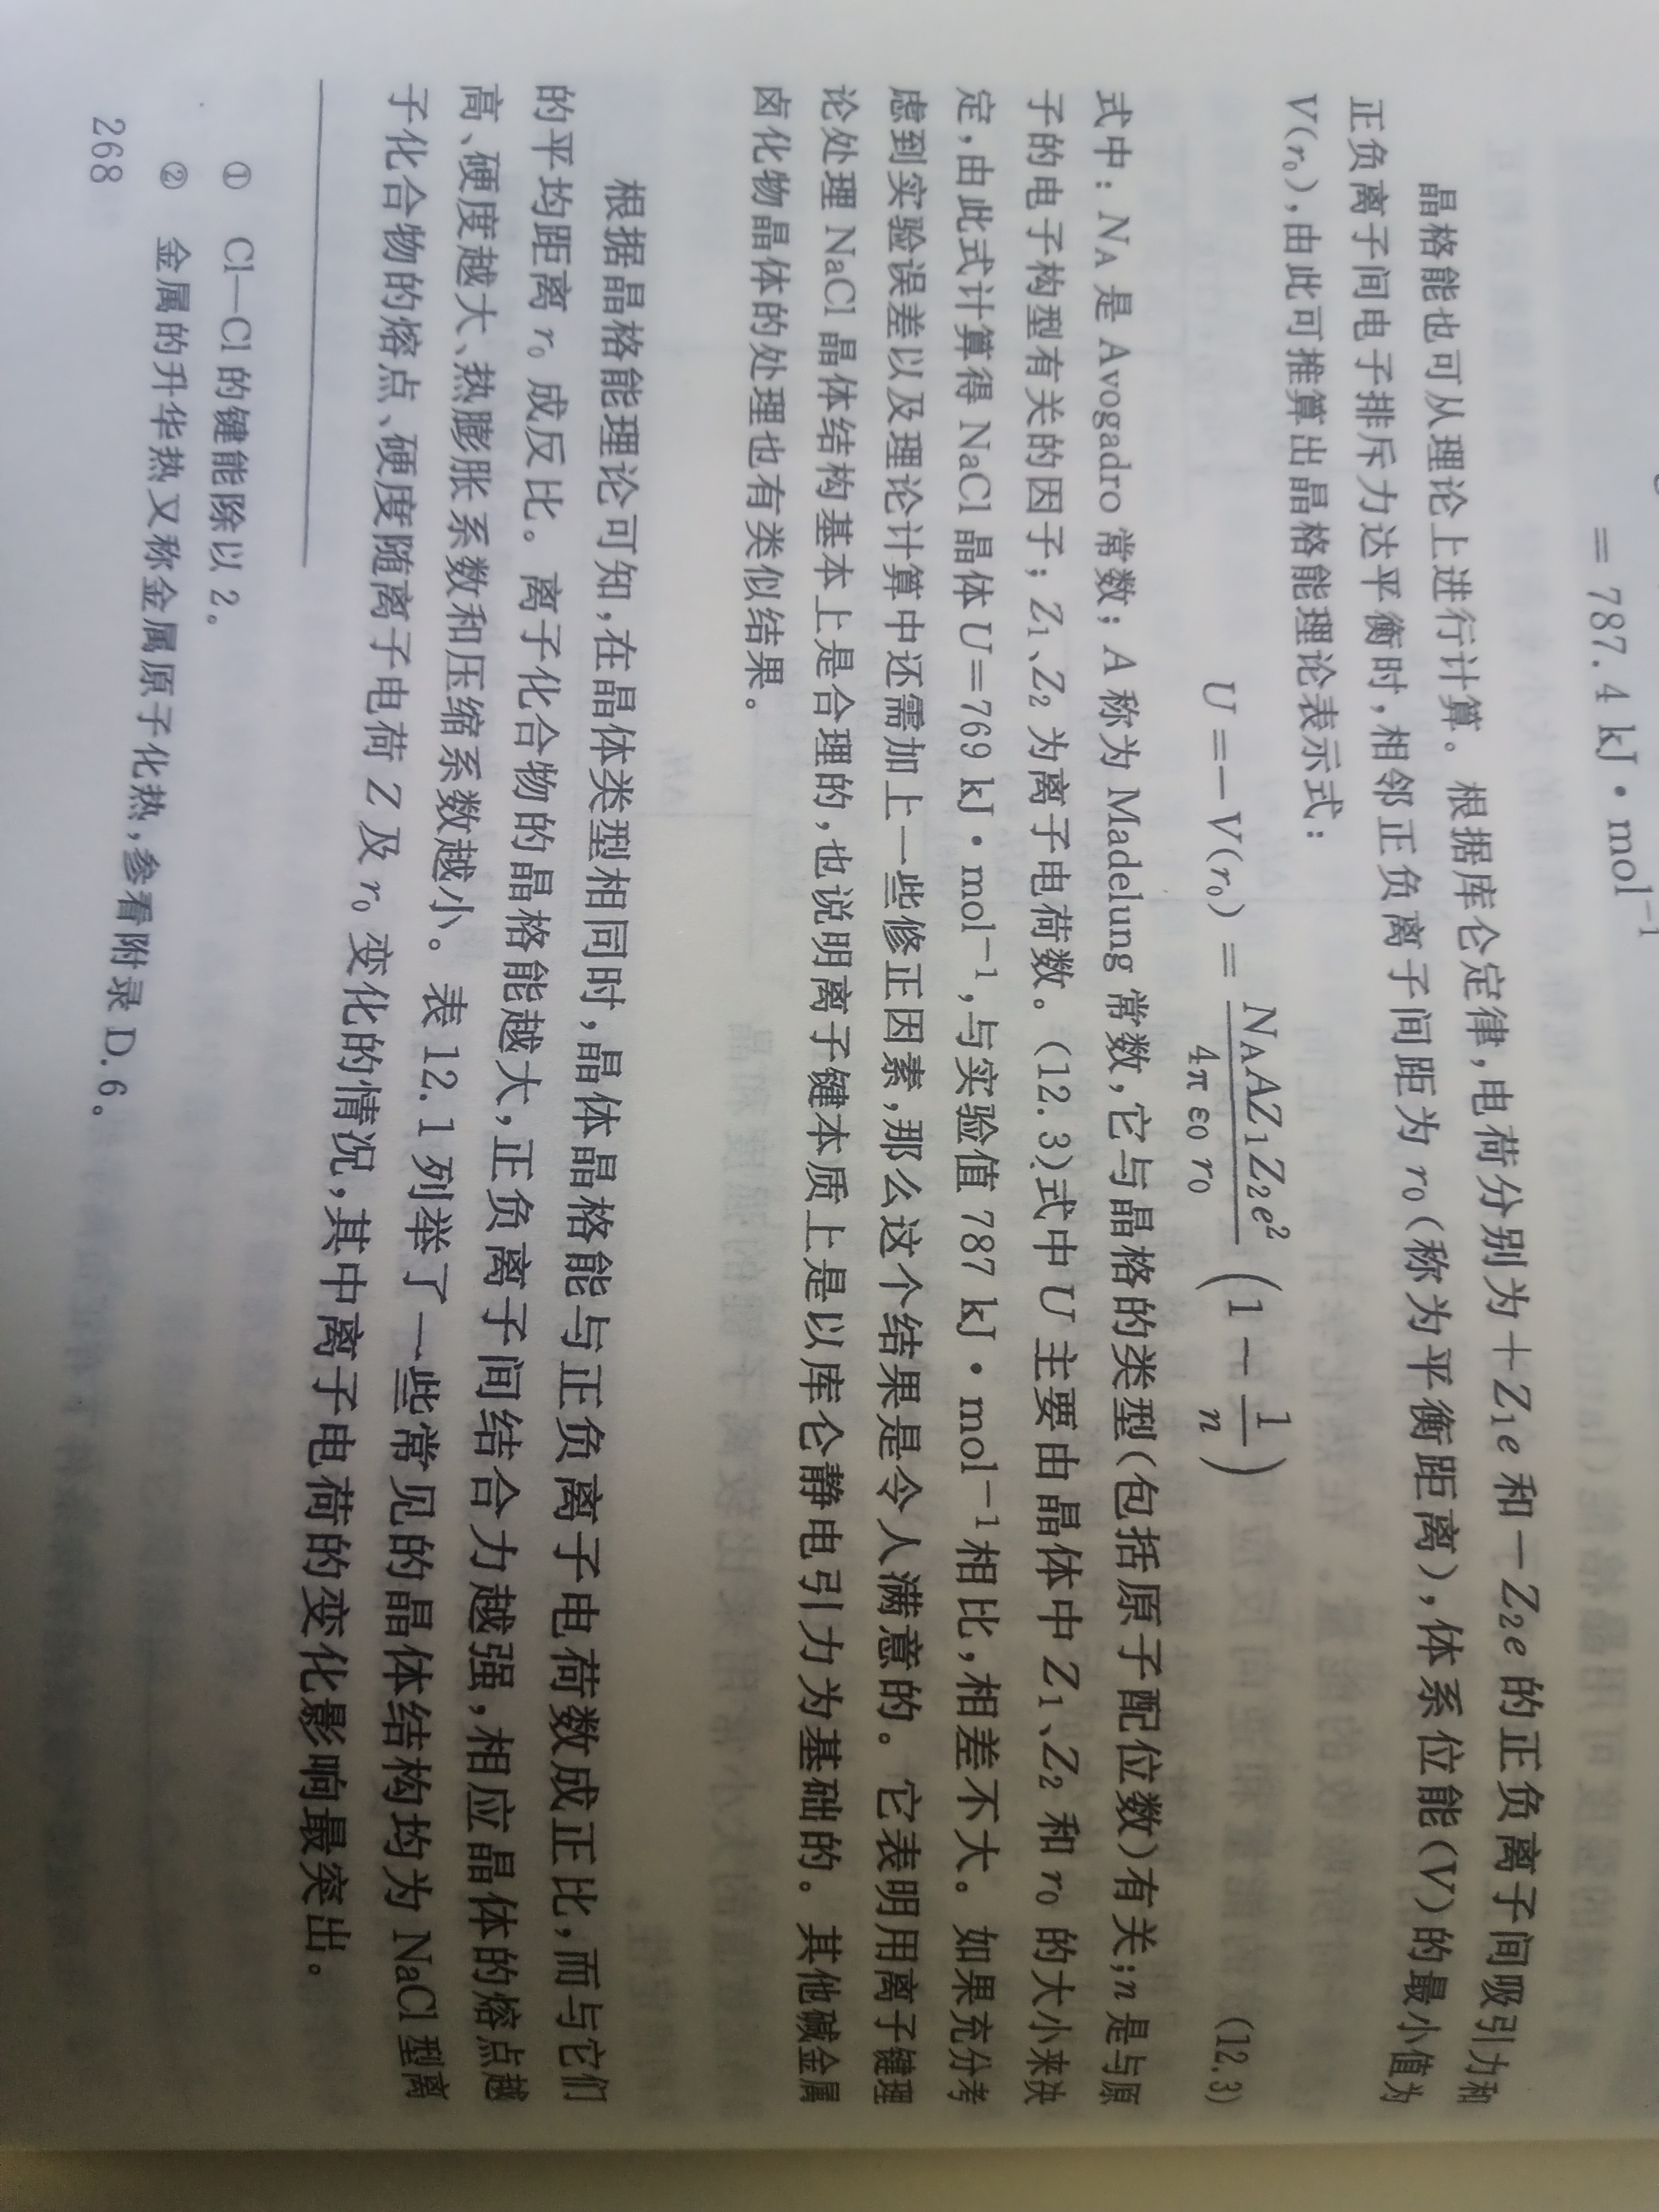 = 787.4 kJ·mol⁻¹
晶格能也可从理论上进行计算。根据库仑定律,电荷分别为+Z₁e 和-Z₂e 的正负离子间吸引力和
正负离子间电子排斥力达平衡时,相邻正负离子间距为 r₀(称为平衡距离),体系位能(V)的最小值为
V(r₀),由此可推算出晶格能理论表示式:
U=-V(r₀)=\frac{N_A AZ₁Z₂e²}{4π ε₀ r₀}(1-\frac{1}{n}) (12.3)
式中: N_A 是 Avogadro 常数; A 称为 Madelung 常数,它与晶格的类型(包括原子配位数)有关;n 是与原
子的电子构型有关的因子; Z₁、Z₂ 为离子电荷数。(12.3)式中 U 主要由晶体中 Z₁、Z₂ 和 r₀ 的大小来决
定,由此式计算得 NaCl 晶体 U=769 kJ·mol⁻¹,与实验值 787 kJ·mol⁻¹相比,相差不大。如果充分考
虑到实验误差以及理论计算中还需加上一些修正因素,那么这个结果是令人满意的。它表明用离子键理
论处理 NaCl 晶体结构基本上是合理的,也说明离子键本质上是以库仑静电引力为基础的。其他碱金属
卤化物晶体的处理也有类似结果。
根据晶格能理论可知,在晶体类型相同时,晶体晶格能与正负离子电荷数成正比,而与它们
的平均距离 r₀ 成反比。离子化合物的晶格能越大,正负离子间结合力越强,相应晶体的熔点越
高、硬度越大、热膨胀系数和压缩系数越小。表 12.1 列举了一些常见的晶体结构均为 NaCl 型离
子化合物的熔点、硬度随离子电荷 Z 及 r₀ 变化的情况,其中离子电荷的变化影响最突出。
① Cl—Cl 的键能除以 2。
② 金属的升华热又称金属原子化热,参看附录 D.6。
268